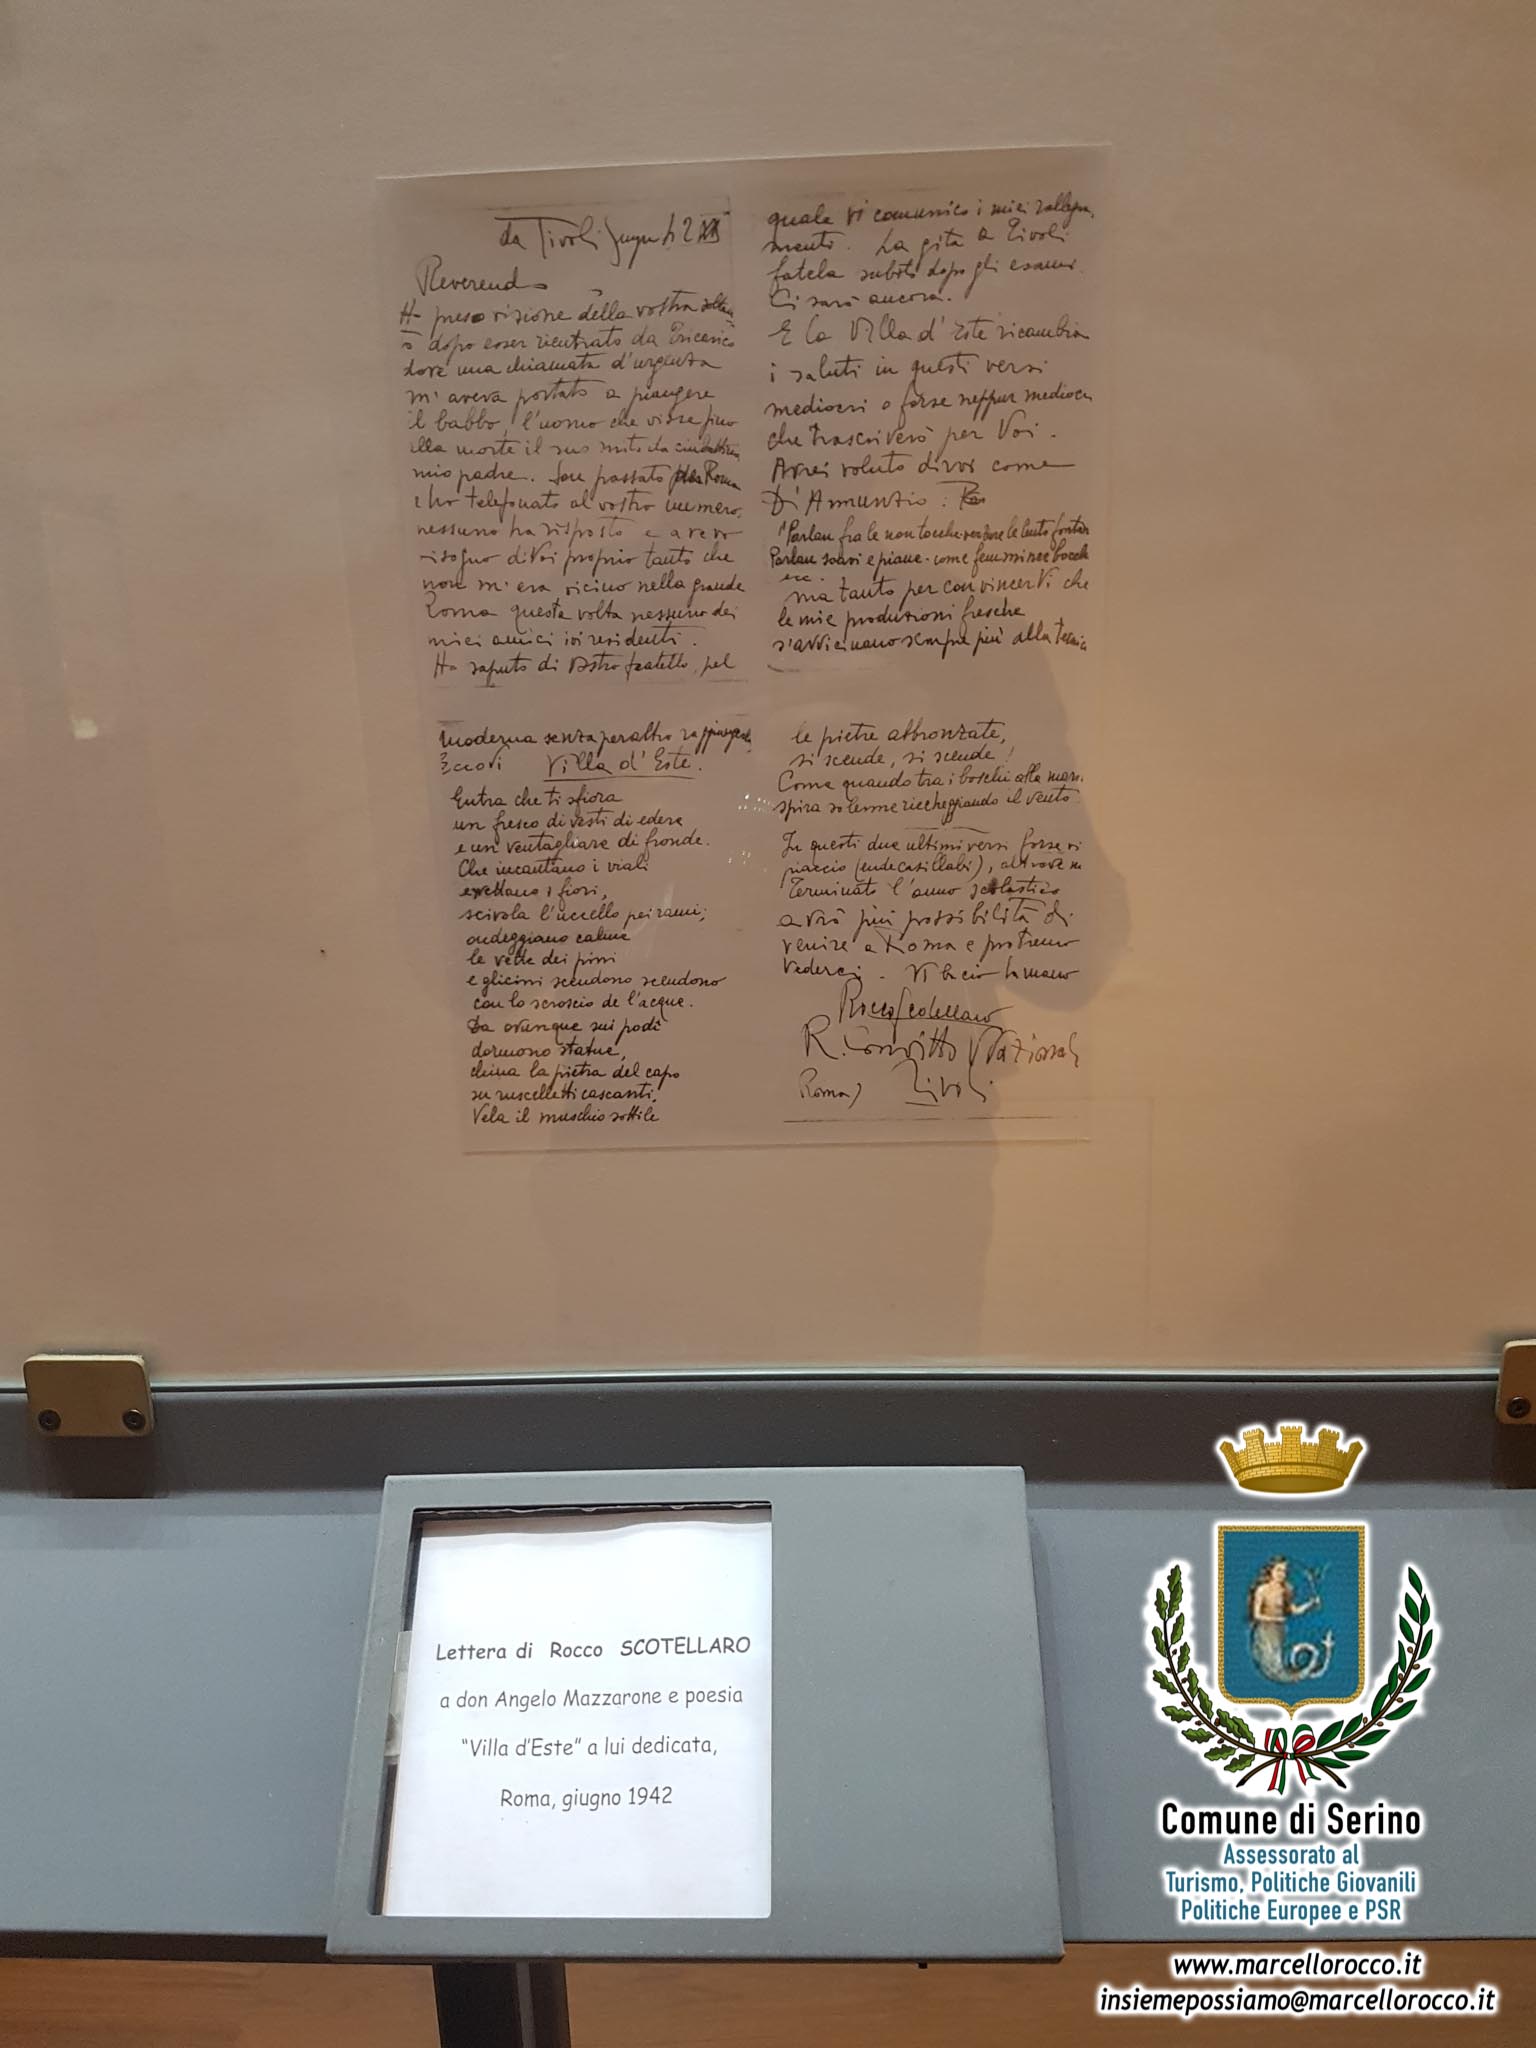 da Tivoli Giugno 42 XX
Reverendo
Ho preso visione della vostra soltan
to dopo esser rientrato da Tricarico
dove una chiamata d'urgenza
m'aveva portato a piangere
il babbo, l'uomo che visse fino
alla morte il suo
mio padre. Son passato per Roma
e ho telefonato al vostro numero,
nessuno ha risposto e avevo
bisogno di Voi proprio tanto che
non m'era vicino nella grande
Roma questa volta nessuno dei
miei amici ivi residenti.
Ho saputo di vostro fratello, pel
quale vi comunico i miei rallegra
menti. La gita a Tivoli
fatela subito dopo gli esami.
Ci sarò ancora.
E la Villa d'Este ricambia
i saluti in questi versi
mediocri o forse neppur mediocri
che trascriverò per Voi.
Avrei voluto dirvi come
D'Annunzio:
"Parlan fra le non tocche verzure le fontan
Parlan soavi e piane come femminee bocche
ecc.
ma tanto per convincerVi che
le mie produzioni fresche
s'avvicinano sempre più alla tecnica
moderna senza peraltro raggiungerla
Eccovi Villa d'Este.
Entra che ti sfiora
un fresco di vesti di edere
e un ventagliare di fronde.
Che incantano i viali
i fiori,
scivola l'uccello pei rami;
ondeggiano calme
le vette dei pini
e glicini scendono scendono
con lo scroscio de l'acque.
Da ovunque sui podi
dormono statue,
china la pietra del capo
su ruscelletti cascanti.
Vela il muschio sottile
le pietre abbronzate,
si scende, si scende!
Come quando tra i boschi alla mar
spira solenne riecheggiando il vento
In questi due ultimi versi forse vi
piaccio (endecasillabi), altrove no
Terminato l'anno scolastico
avrò più possibilità di
venire a Roma e potremo
vederci. Vi bacio la mano
Rocco Scotellaro
R. Convitto Nazionale
Roma) Tivoli
Lettera di Rocco SCOTELLARO
a don Angelo Mazzarone e poesia
"Villa d'Este" a lui dedicata,
Roma, giugno 1942
Comune di Serino
Assessorato al
Turismo, Politiche Giovanili
Politiche Europee e PSR
www.marcellorocco.it
insiemepossiamo@marcellorocco.it